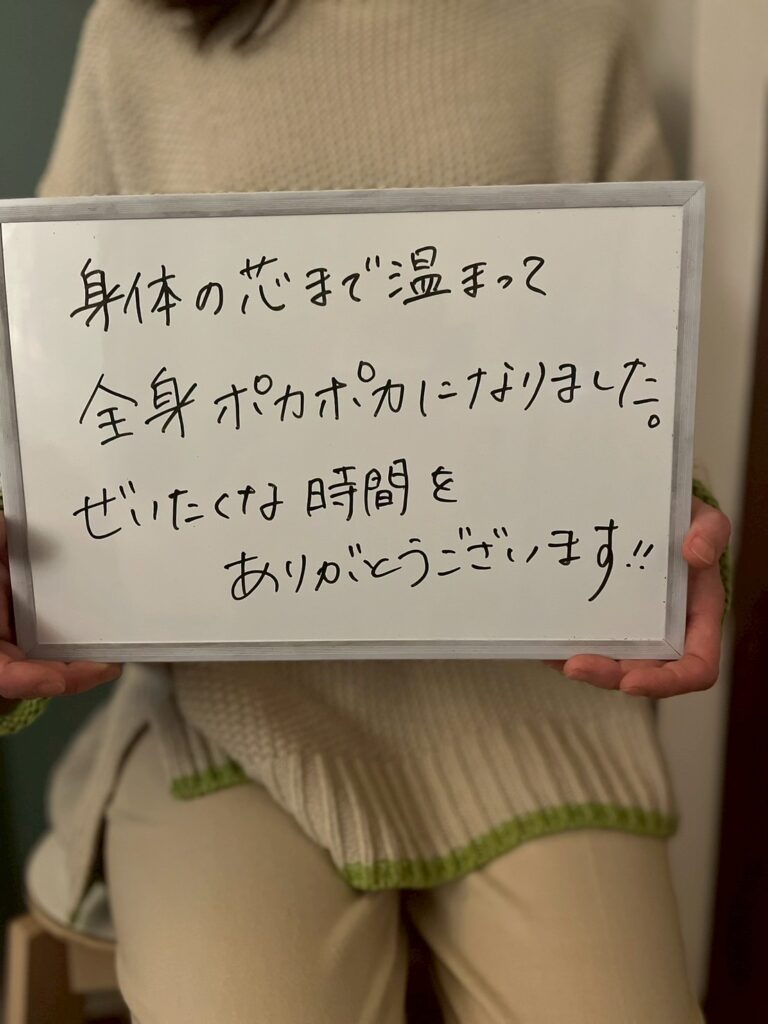 身体の芯まで温まって
全身ポカポカになりました。
ぜいたくな時間を
ありがとうございます!!